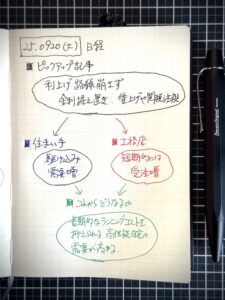 25.0920(土) 日経
■ピックアップ記事
利上げ路線崩さず
金利据え置き 賃上げや関税注視
■住まい手
駆け込み
需要増
■工務店
短期的には
受注増
■これからどうなるか
長期的なランニングコストを
抑えられる高性能住宅の
需要が高まる。